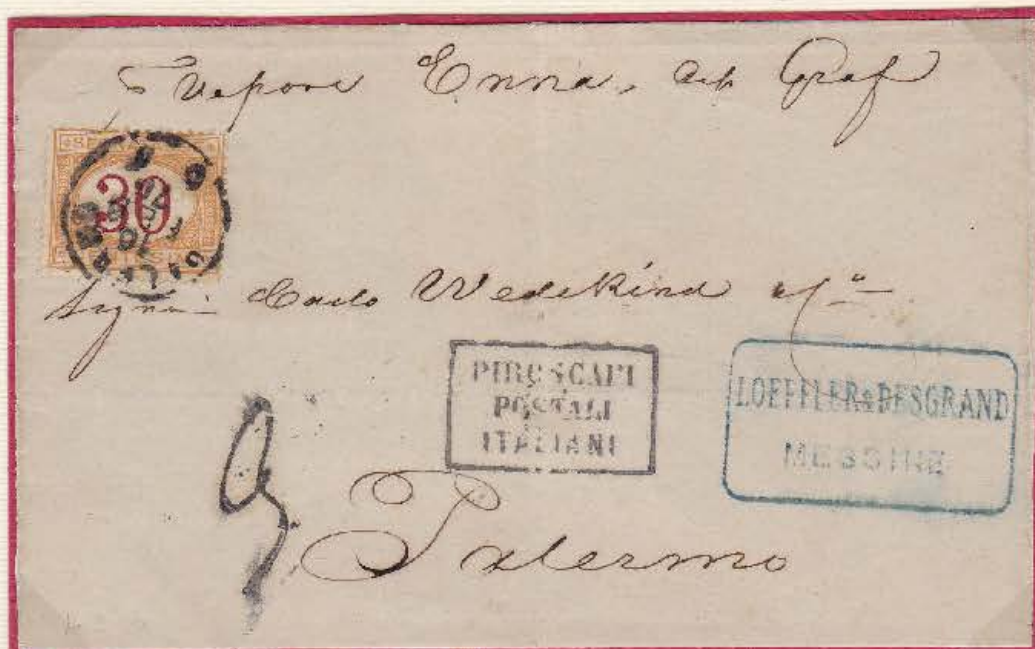 Vapore Enna, Cap Graf
SE
30
PALERMO
Carlo Wedekind
PIROSCAFI
POSTALI
ITALIANI
LOEFFLER & DESGRAND
MESSINE
3
Palermo